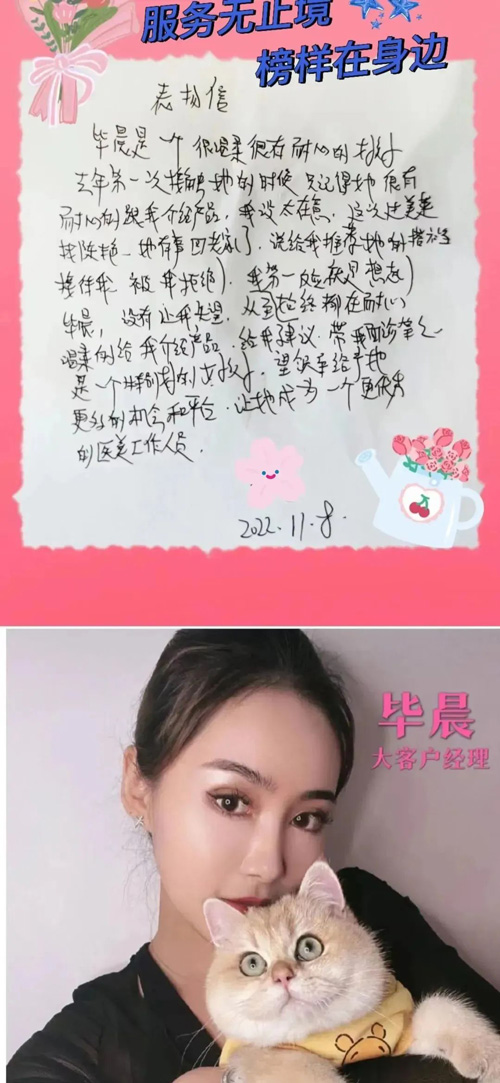 服务无止境
榜样在身边
表扬信
毕晨是一个很温柔很有耐心的
去年第一次接触她的时候 只记得她很有
耐心的跟我介绍产品，我没太在意，这次过来是
她有事回老家了，说给我推荐她的
搭伴我 被我拒绝）．我第一反应就是想在）
毕晨，没有让我失望，从到始终都在耐心
温柔的给我介绍产品 给我建议．带我面诊等等
是一个特别好的女孩，望领导给予她
更多的机会和平台，让她成为一个更优秀
的医美工作人员．
2022.11.8.
毕晨
大客户经理